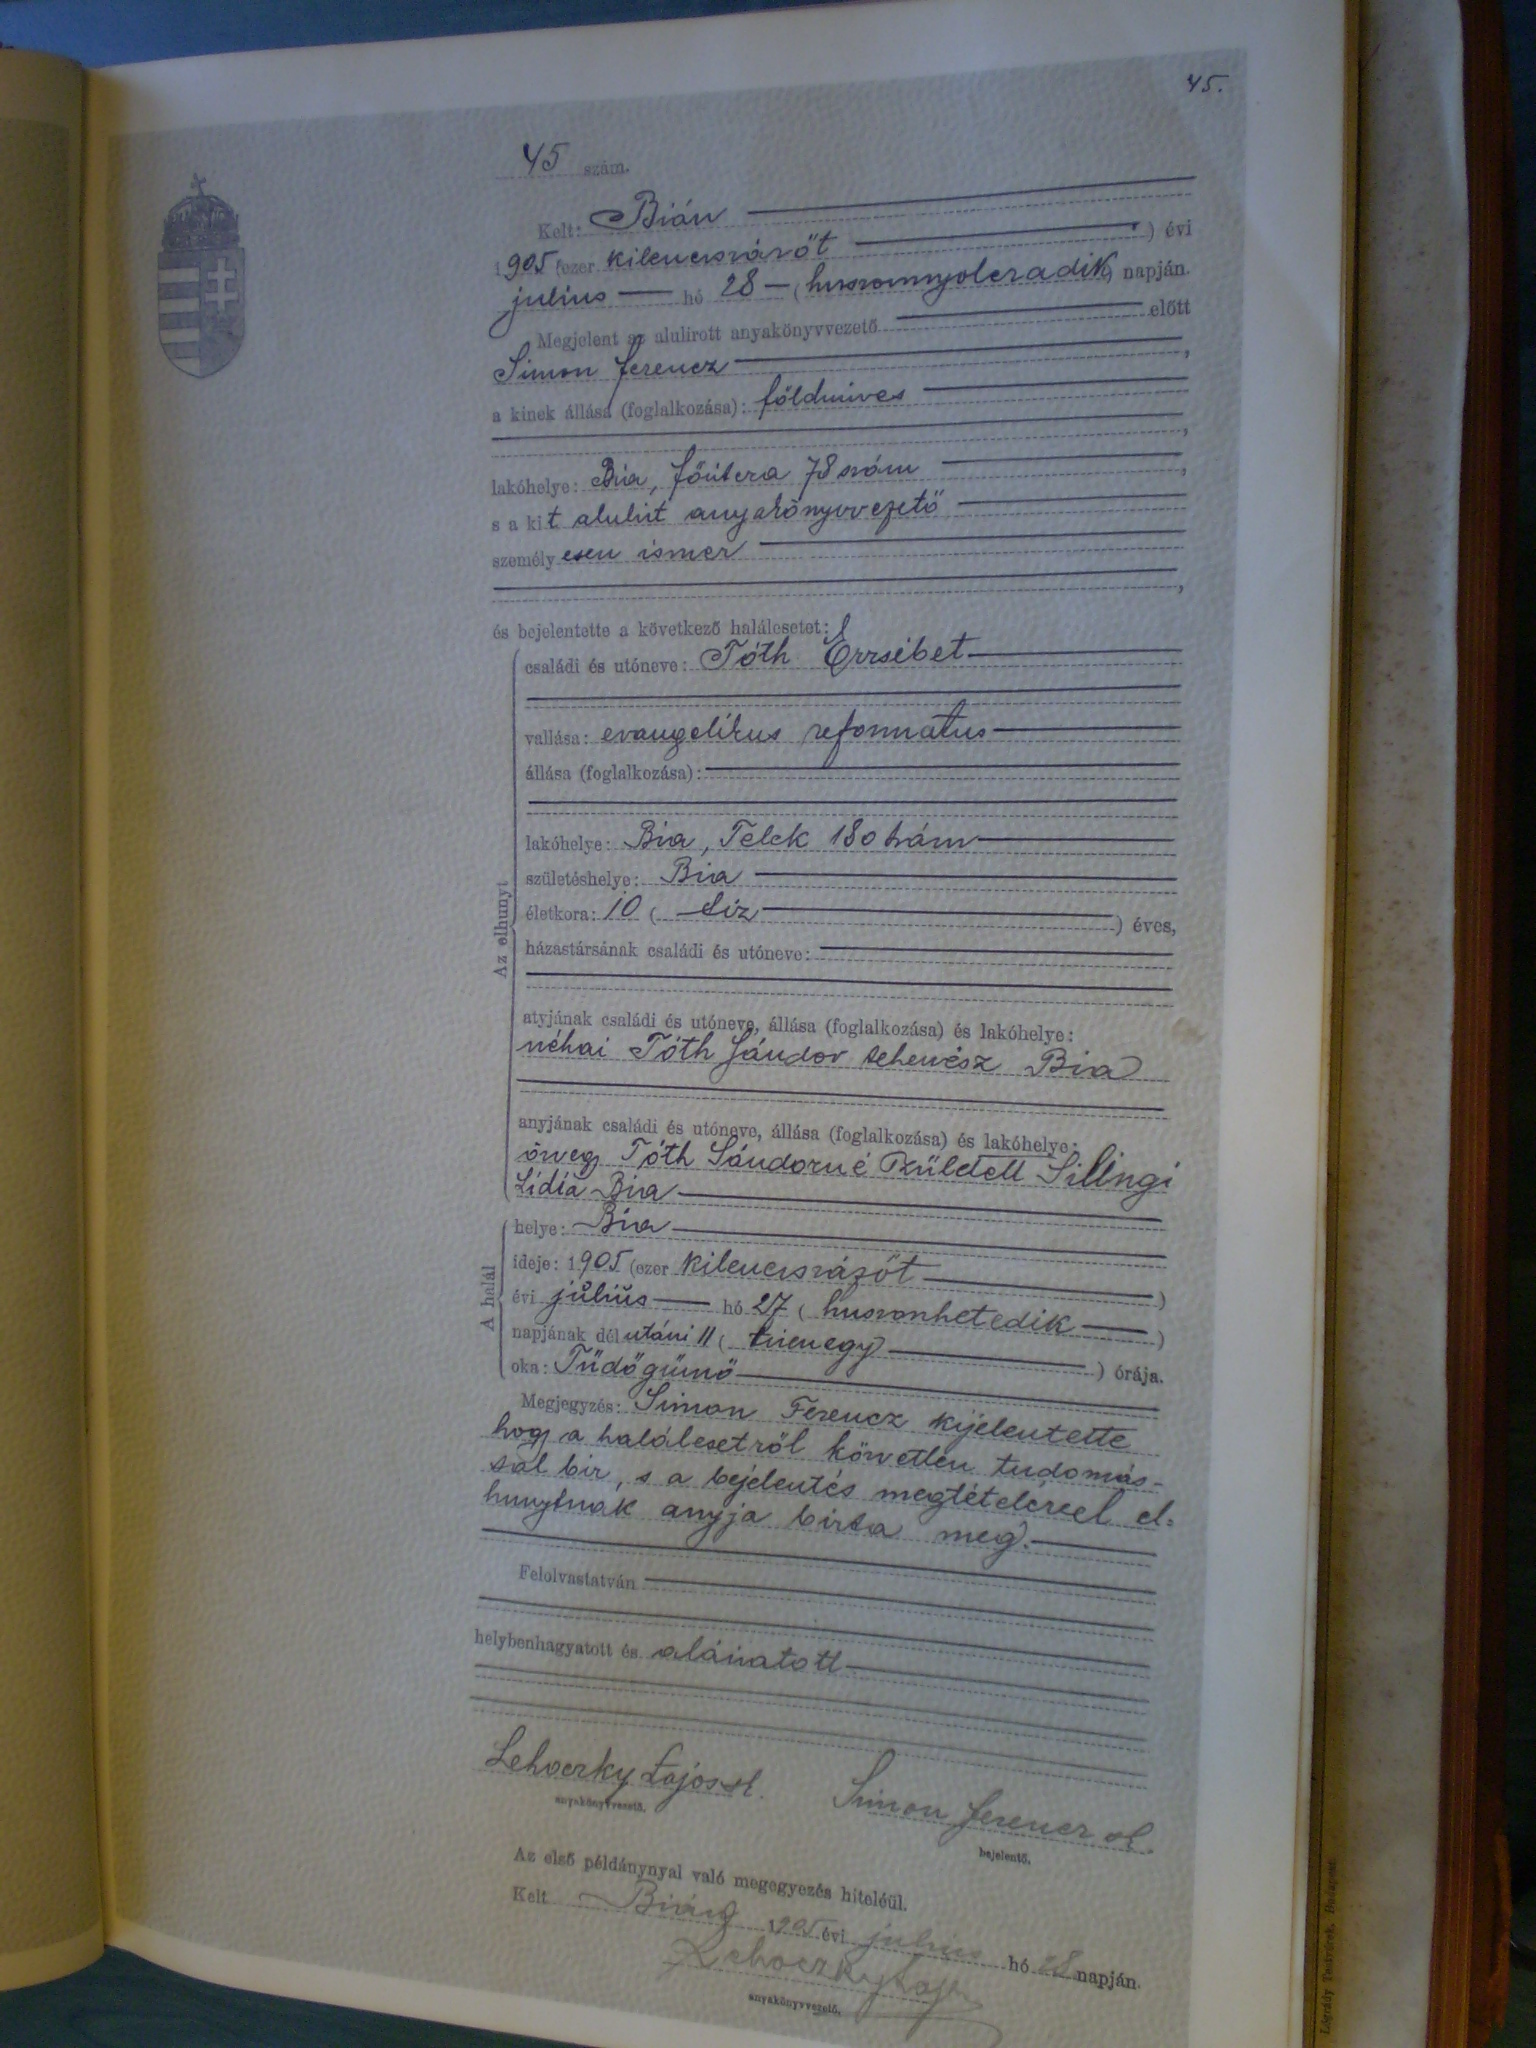 45.
45 szám.
Kelt: Bián
1905 (ezer kilenczszázöt) évi
julius hó 28 (huszonnyolczadik) napján.
Megjelent az alulirott anyakönyvvezető előtt
Simon Ferencz,
a kinek állása (foglalkozása): földmives
,
lakóhelye: Bia, főútcza 78 szám,
s a kit alulirt anyakönyvvezető
személyesen ismer
,
és bejelentette a következő halálesetet:
Az elhunyt
családi és utóneve: Tóth Erzsébet
vallása: evangelikus reformatus
állása (foglalkozása):
lakóhelye: Bia, Telek 180 szám
születéshelye: Bia
életkora: 10 (tiz) éves,
házastársának családi és utóneve:
atyjának családi és utóneve, állása (foglalkozása) és lakóhelye:
néhai Tóth Sándor tehenész Bia
anyjának családi és utóneve, állása (foglalkozása) és lakóhelye:
özvegy Tóth Sándorné született Silingi
Lidia Bia
A halál
helye: Bia
ideje: 1905 (ezer kilenczszázöt)
évi július hó 27 (huszonhetedik)
napjának délutáni 11 (tizenegy) órája.
oka: Tüdőgümő
Megjegyzés: Simon Ferencz kijelentette
hogy a halálesetről közvetlen tudomás-
sal bir, s a bejelentés megtételével el=
hunytnak anyja bizta meg.
Felolvastatván
helybenhagyatott és aláiratott
Lehoczky Lajos sk. Simon Ferencz sk.
anyakönyvvezető. bejelentő.
Az első példánynyal való megegyezés hiteléül.
Kelt Bián 1905 évi julius hó 28 napján.
Lehoczky Lajos
anyakönyvvezető.
Légrády Testvérek, Budapest